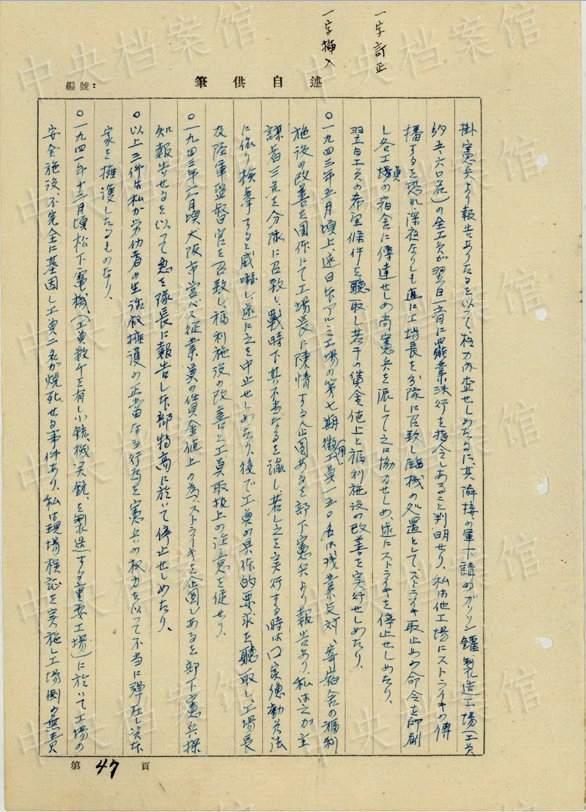 一字訂正
一字挿入
編號:
筆供自述
掛憲兵より報告ありたるを以って極力内査せしめたるに其隣接の軍下請のガソリン罐製造工場(工員
約五、六〇名)の全工員が翌日一斉に罷業決行を指令しあること判明せり、私は他工場にストライキの傳
播するを恐れ深夜なりしも直に工場長を分隊に召致し臨機の処置としてストライキ取止めの命令を即刻
し各工場員の宿舎に傳達せしめ尚憲兵を派して之に協力せしめ遂にストライキを停止せしめたり、
翌日工員の希望條件を聴取し若干の賃金値上と福利施設の改善を実行せしめたり、
〇一九四三年五月頃上述日本アルミ工場の第七期徴用工員一五〇名は残業反対、寄宿舎の福利
施設の改善を固作にて工場長に陳情する企図あるを部下憲兵より報告あり、私は之が主
謀者三名を分隊に召致し戦時下其不当なるを論し若し之を実行する時は国家總動員法
に依り検挙すると威嚇し遂に之を中止せしめたり、後で工員の具体的要求を聴取し、工場長
及陸軍監督官を召致し福利施設の改善と工員取扱上の注意を促せり、
〇一九四二年六月頃、大阪市営バス従業員の賃金値上の為ストライキを企図しあるを部下憲兵探
知報告せるを以って急を隊長に報告し本部特高に於いて停止せしめたり、
〇以上三件は私が労働者の生活权擁護の正当なる行為を憲兵の权力を以って不当に彈圧し資本
家を擁護したるものなり、
〇一九四一年十二月頃松下電機(工員数千を有し小鉱機、天鏡を製造する重要工場)に於いて工場の
安全施設不完全に基因し工員二名が焼死せる事件あり、私は現場検証を実施し工場側の無責
第 47 頁
中央档案馆